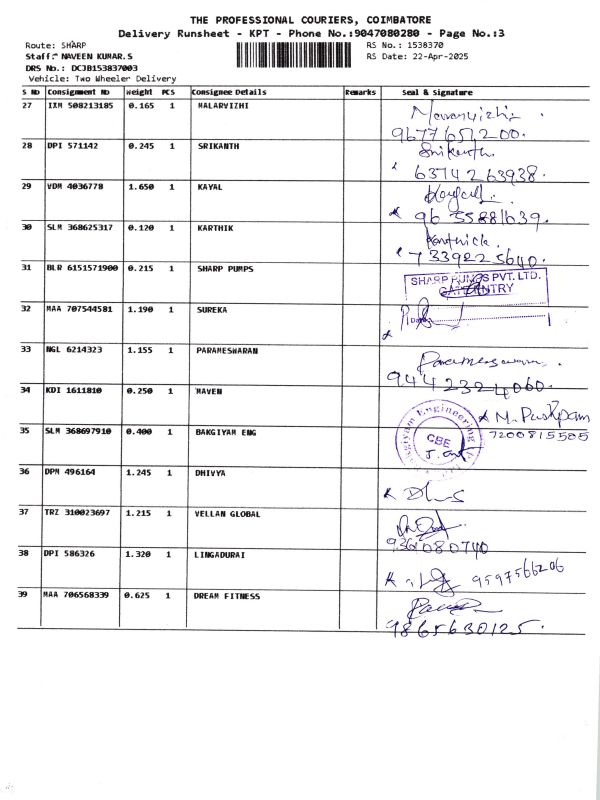 THE PROFESSIONAL COURIERS, COIMBATORE
Delivery Runsheet - KPT - Phone No.:9047080280 - Page No.:3
Route: SHARP RS No.: 1538370
Staff: NAVEEN KUMAR.S RS Date: 22-Apr-2025
DRS No.: DCJB153837003
Vehicle: Two Wheeler Delivery
S No Consignment No Weight PCS Consignee Details Remarks Seal & Signature
27 IXM 508213185 0.165 1 MALARVIZHI
9677651200.
28 DPI 571142 0.245 1 SRIKANTH Srikanth
6374263938.
29 VDM 4036778 1.650 1 KAYAL
9655881639.
30 SLM 368625317 0.120 1 KARTHIK Karthick.
7339225640.
31 BLR 6151571900 0.215 1 SHARP PUMPS SHARP PUMPS PVT. LTD.
32 MAA 707544581 1.190 1 SUREKA
33 NGL 6214323 1.155 1 PARAMESWARAN Parameswaran.
9442324060.
34 KDI 1611810 0.250 1 MAVEN M. Pushpam
7200815505
35 SLM 368697910 0.400 1 BAKGIYAM ENG Bakgiyam Engineering CBE
36 DPM 496164 1.245 1 DHIVYA
37 TRZ 310023697 1.215 1 VELLAN GLOBAL
9361080740
38 DPI 586326 1.320 1 LINGADURAI 9597566206
39 MAA 706568339 0.625 1 DREAM FITNESS
9865630125.